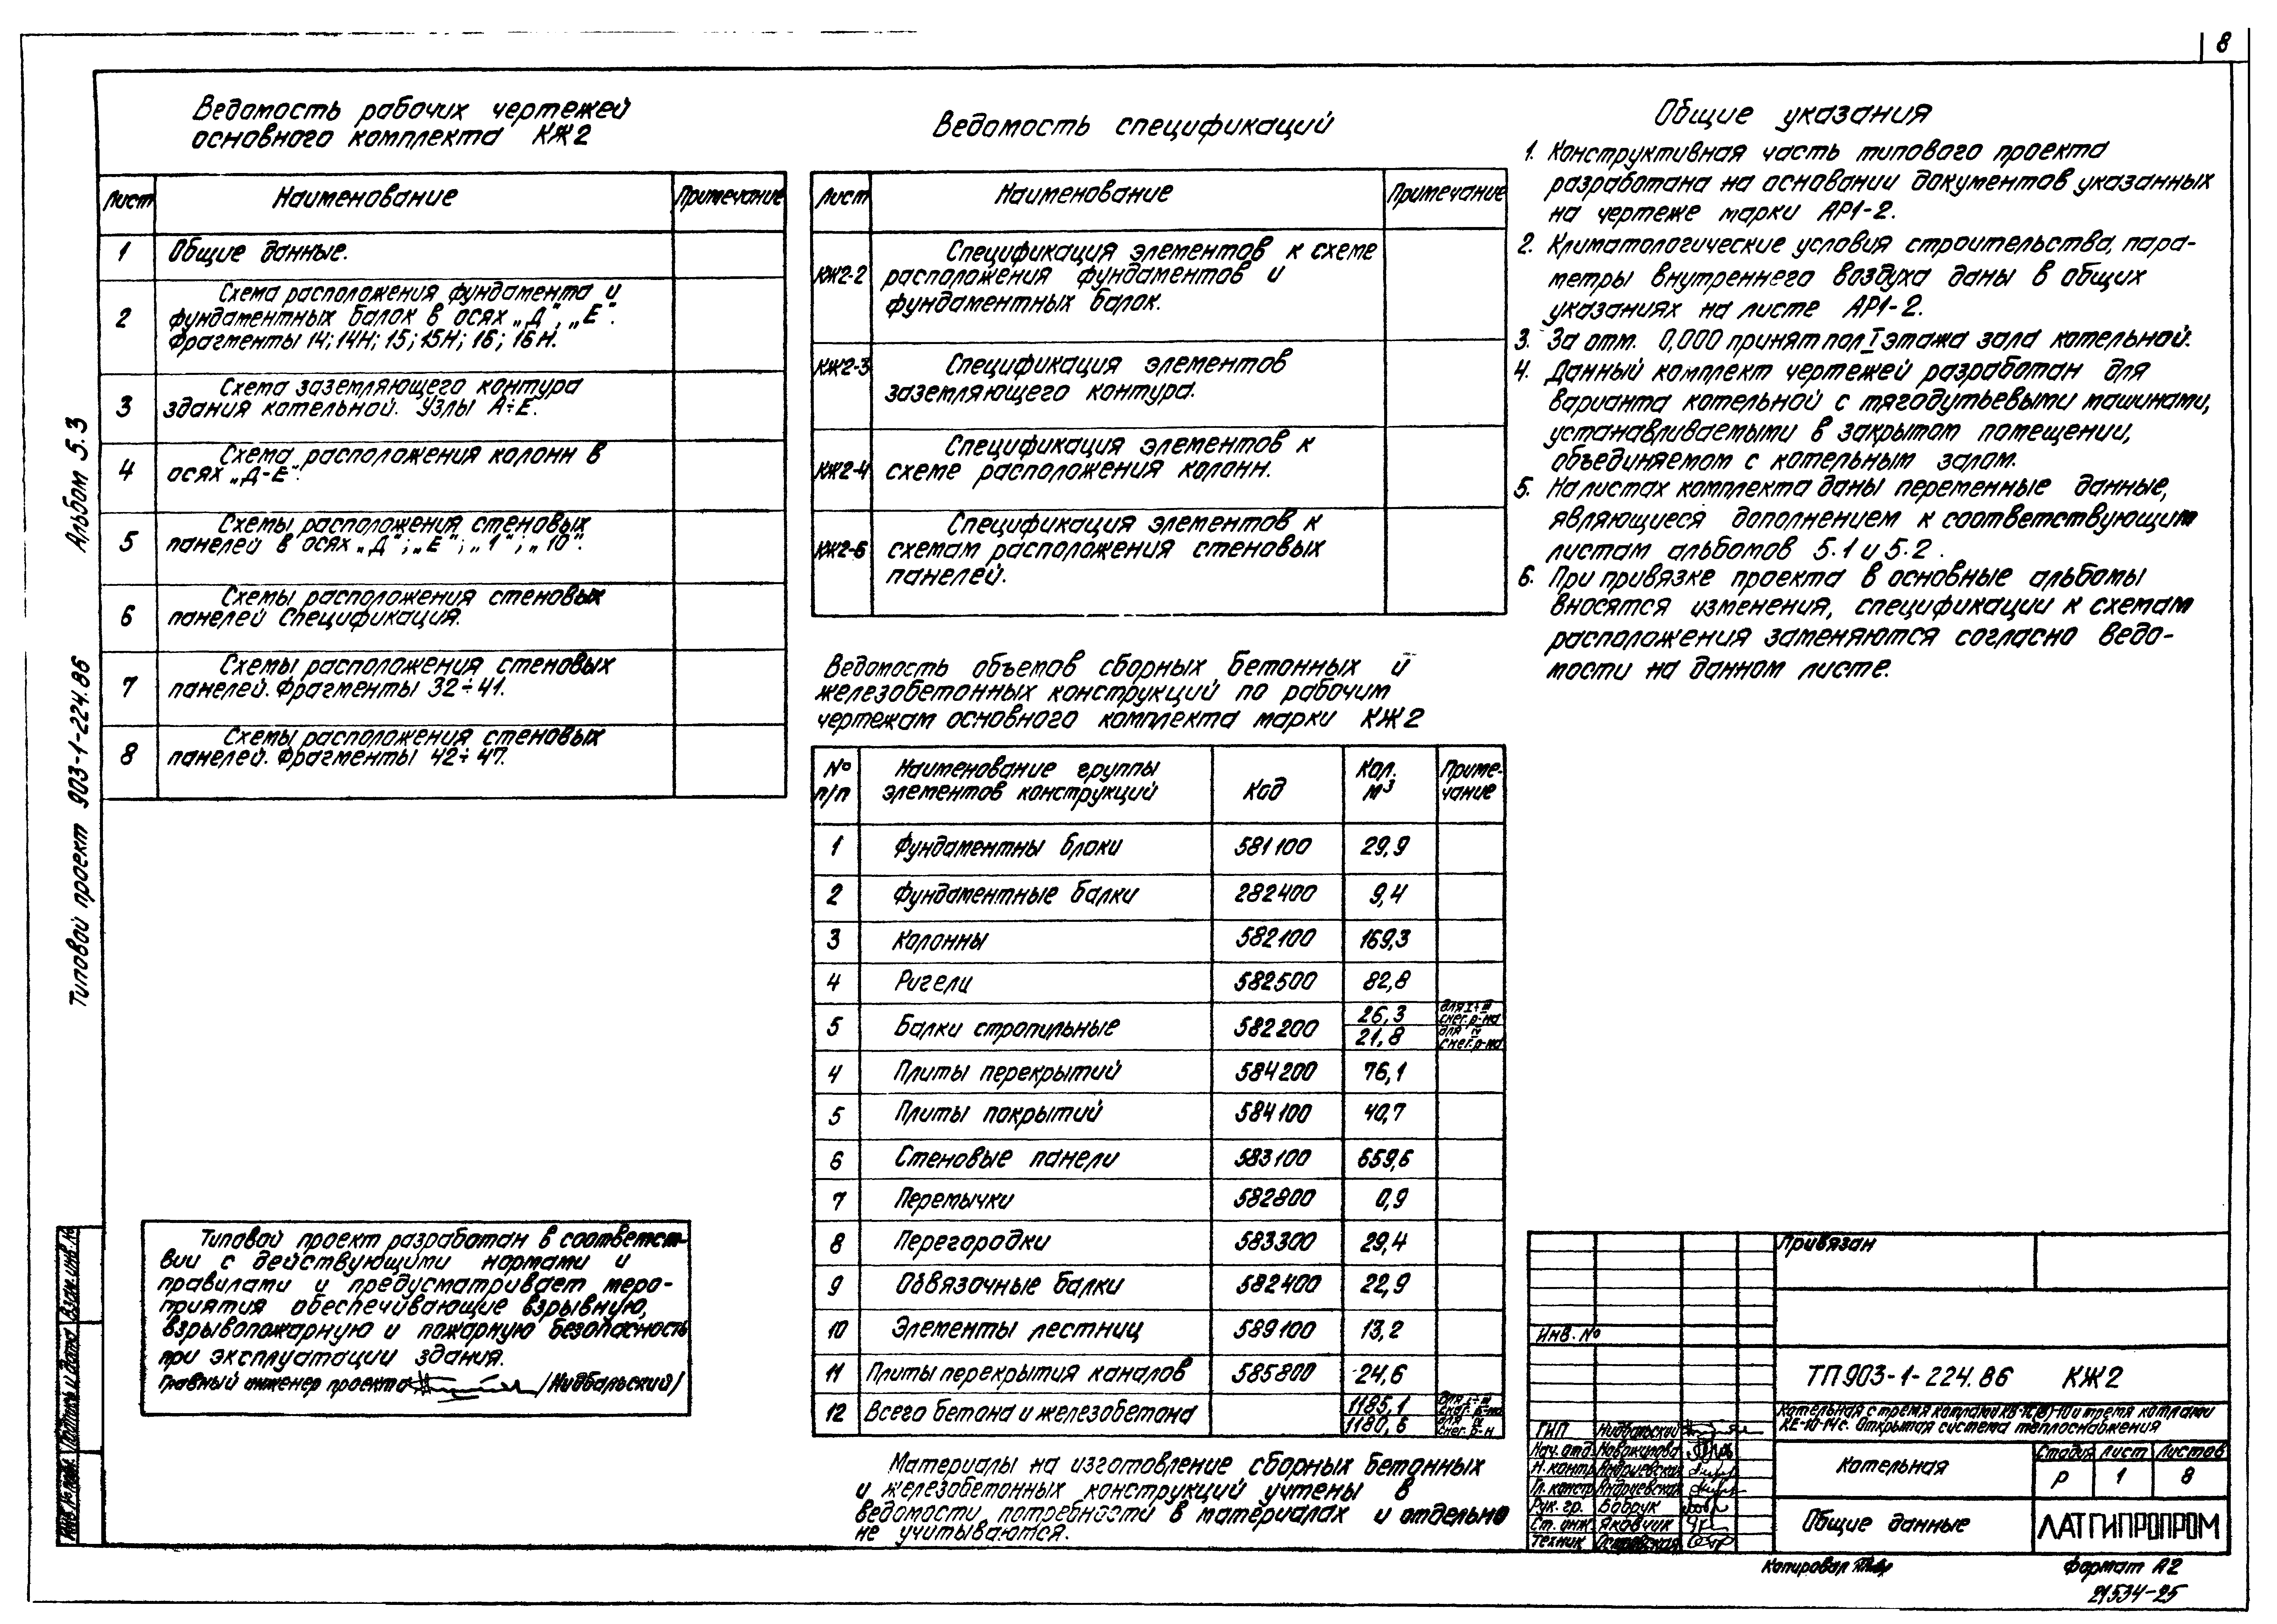 8
Ведомость рабочих чертежей
основного комплекта КЖ2
Лист Наименование Примечание
1 Общие данные.
2 Схема расположения фундамента и
фундаментных балок в осях „Д“, „Е“.
Фрагменты 14; 14Н; 15; 15Н; 16; 16Н.
3 Схема заземляющего контура
здания котельной. Узлы А÷Е.
4 Схема расположения колонн в
осях „Д-Е“.
5 Схемы расположения стеновых
панелей в осях „Д“; „Е“; „1“; „10“.
6 Схемы расположения стеновых
панелей Спецификация.
7 Схемы расположения стеновых
панелей. Фрагменты 32÷41.
8 Схемы расположения стеновых
панелей. Фрагменты 42÷47.
Типовой проект разработан в соответст-
вии с действующими нормами и
правилами и предусматривает меро-
приятия обеспечивающие взрывную,
взрывопожарную и пожарную безопасность
при эксплуатации здания.
Главный инженер проекта /Нидбальский/
Ведомость спецификаций
Лист Наименование Примечание
КЖ2-2 Спецификация элементов к схеме
расположения фундаментов и
фундаментных балок.
КЖ2-3 Спецификация элементов
заземляющего контура.
КЖ2-4 Спецификация элементов к
схеме расположения колонн.
КЖ2-6 Спецификация элементов к
схемам расположения стеновых
панелей.
Ведомость объемов сборных бетонных и
железобетонных конструкций по рабочим
чертежам основного комплекта марки КЖ2
№ п/п Наименование группы элементов конструкций Код Кол. м³ Приме-чание
1 Фундаментны блоки 581100 29,9
2 Фундаментные балки 282400 9,4
3 Колонны 582100 169,3
4 Ригели 582500 82,8
5 Балки стропильные 582200 26,3 для I÷III снег. р-на
21,8 для IV снег. р-на
4 Плиты перекрытий 584200 76,1
5 Плиты покрытий 584100 40,7
6 Стеновые панели 583100 659,6
7 Перемычки 582800 0,9
8 Перегородки 583300 29,4
9 Обвязочные балки 582400 22,9
10 Элементы лестниц 589100 13,2
11 Плиты перекрытия каналов 585800 24,6
12 Всего бетона и железобетона 1185,1 для I÷III снег. р-на
1180,6 для IV снег. р-н
Материалы на изготовление сборных бетонных
и железобетонных конструкций учтены в
ведомости потребности в материалах и отдельно
не учитываются.
Общие указания
1. Конструктивная часть типового проекта
разработана на основании документов указанных
на чертеже марки АР1-2.
2. Климатологические условия строительства, пара-
метры внутреннего воздуха даны в общих
указаниях на листе АР1-2.
3. За отм. 0,000 принят пол I этажа зала котельной.
4. Данный комплект чертежей разработан для
варианта котельной с тягодутьевыми машинами,
устанавливаемыми в закрытом помещении,
объединяемом с котельным залом.
5. На листах комплекта даны переменные данные,
являющиеся дополнением к соответствующим
листам альбомов 5.1 и 5.2.
6. При привязке проекта в основные альбомы
вносятся изменения, спецификации к схемам
расположения заменяются согласно ведо-
мости на данном листе.
Привязан
Инв. №
ТП 903-1-224.86 КЖ2
Котельная с тремя котлами и тремя котлами
КЕ-10-14с. Открытая система теплоснабжения
ГИП Нидбальский
Нач. отд.
Н. контр Андриевская
Гл. констр Андриевская
Рук. гр. Бобрук
Ст. инж. Яковчик
Техник Островская
Котельная
Стадия Лист Листов
Р 1 8
Общие данные
ЛАТГИПРОПРОМ
Копировал
Формат А2
21534-25
Типовой проект 903-1-224.86 Альбом 5.3
Инв. № подл. Подпись и дата Взам. инв. №